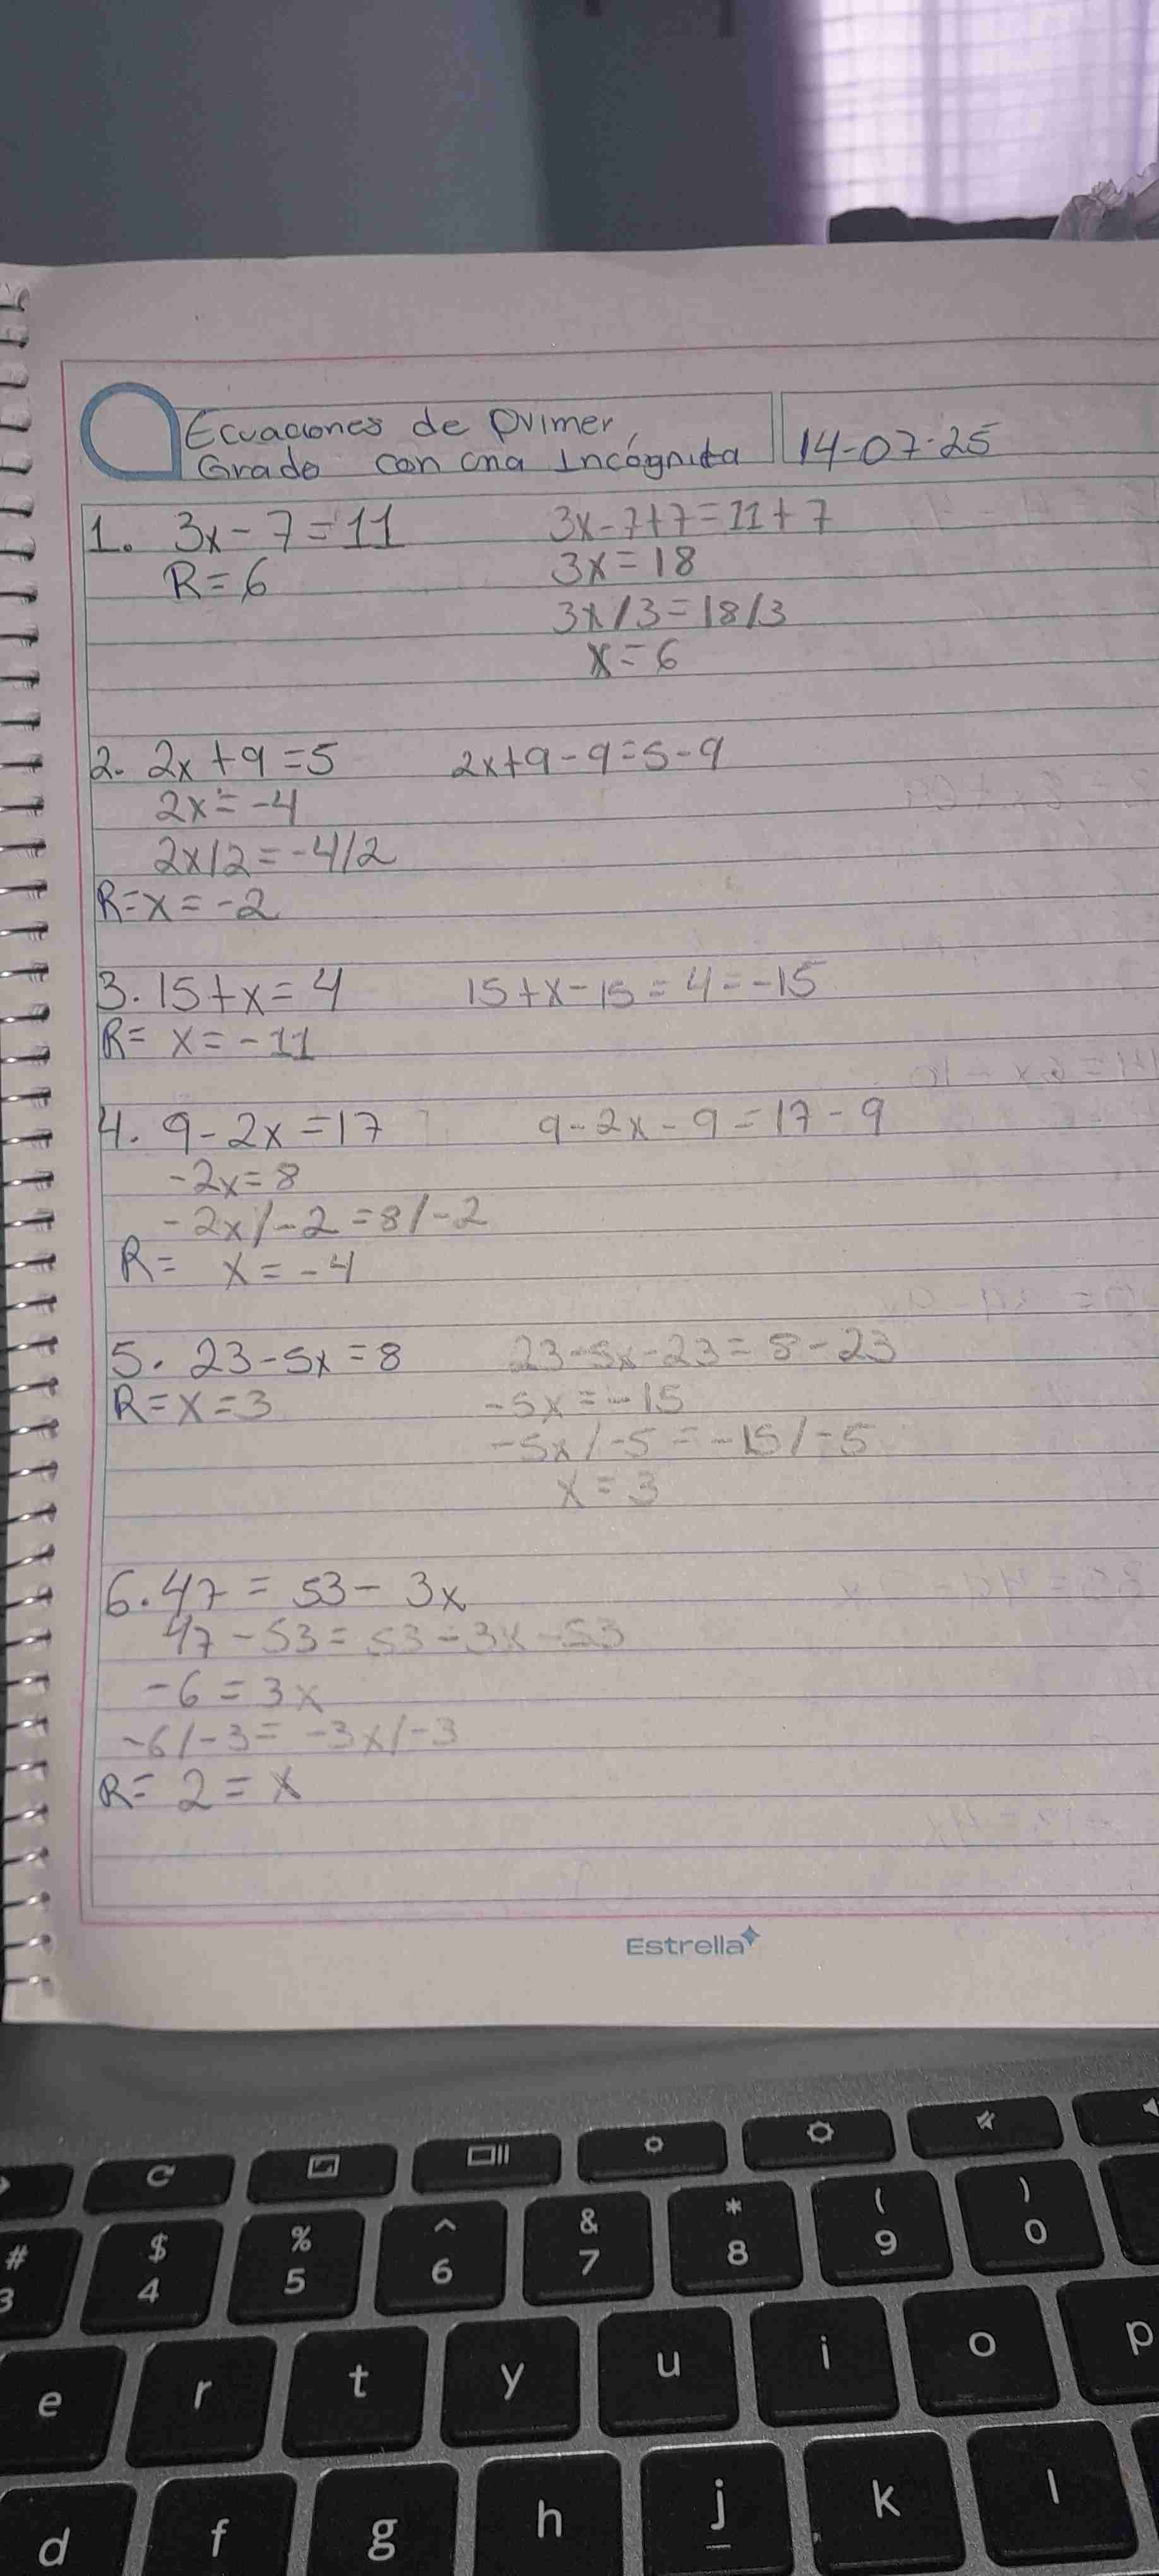 Ecuaciones de primer
Grado con una Incógnita
14-07-25
1. 3x-7=11
3x-7+7=11+7
R=6
3x=18
3x/3=18/3
x=6
2. 2x+9=5
2x+9-9=5-9
2x=-4
2x/2=-4/2
R=x=-2
3. 15+x=4
15+x-15=4=-15
R= x=-11
4. 9-2x=17
9-2x-9=17-9
-2x=8
-2x/-2=8/-2
R= x=-4
5. 23-5x=8
23-5x-23=8-23
R=x=3
-5x=-15
-5x/-5=-15/-5
x=3
6. 47=53-3x
47-53=53-3x-53
-6=3x
-6/-3=-3x/-3
R= 2=x
Estrella
# $ % ^ & * ( )
3 4 5 6 7 8 9 0
e r t y u i o p
d f g h j k l